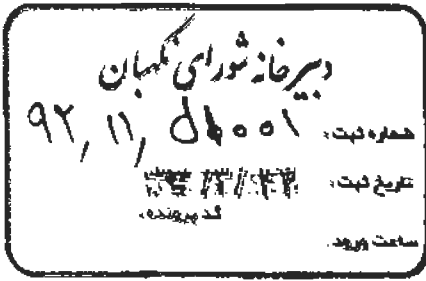 دبیرخانه شورای نگهبان
شماره ثبت: ۹۲/۱۱/
تاریخ ثبت:
کد پرونده:
ساعت ورود: